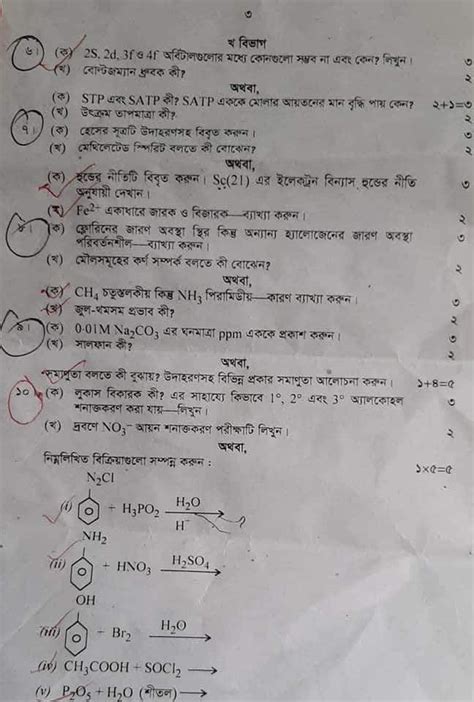 ৩
খ বিভাগ
৬। (ক) 2S, 2d, 3f ও 4f অরবিটালগুলোর মধ্যে কোনগুলো সম্ভব না এবং কেন? লিখুন। ৩
(খ) বোল্টজম্যান ধ্রুবক কী? ২
অথবা,
(ক) STP এবং SATP কী? SATP এককে মোলার আয়তনের মান বৃদ্ধি পায় কেন? ২+১=৩
(খ) উৎক্রম তাপমাত্রা কী? ২
৭। (ক) হেসের সূত্রটি উদাহরণসহ বিবৃত করুন। ৩
(খ) মেথিলেটেড স্পিরিট বলতে কী বোঝেন? ২
অথবা,
(ক) হুন্ডের নীতিটি বিবৃত করুন। Sc(21) এর ইলেকট্রন বিন্যাস হুন্ডের নীতি ৩
অনুযায়ী দেখান।
(খ) Fe²⁺ একাধারে জারক ও বিজারক—ব্যাখ্যা করুন। ২
৮। (ক) ফ্লোরিনের জারণ অবস্থা স্থির কিন্তু অন্যান্য হ্যালোজেনের জারণ অবস্থা ৩
পরিবর্তনশীল—ব্যাখ্যা করুন।
(খ) মৌলসমূহের কর্ণ সম্পর্ক বলতে কী বোঝেন? ২
অথবা,
(ক) CH₄ চতুস্তলকীয় কিন্তু NH₃ পিরামিডীয়—কারণ ব্যাখ্যা করুন। ৩
(খ) জুল-থমসন প্রভাব কী? ২
৯। (ক) 0·01M Na₂CO₃ এর ঘনমাত্রা ppm এককে প্রকাশ করুন। ৩
(খ) সালফান কী? ২
অথবা,
সমাণুতা বলতে কী বুঝায়? উদাহরণসহ বিভিন্ন প্রকার সমাণুতা আলোচনা করুন। ১+৪=৫
১০। (ক) লুকাস বিকারক কী? এর সাহায্যে কিভাবে 1°, 2° এবং 3° অ্যালকোহল ৩
শনাক্তকরণ করা যায়—লিখুন।
(খ) দ্রবণে NO₃⁻ আয়ন শনাক্তকরণ পরীক্ষাটি লিখুন। ২
অথবা,
নিম্নলিখিত বিক্রিয়াগুলো সম্পন্ন করুন : ১×৫=৫
N₂Cl
(i) + H₃PO₂ H₂O
H⁻
NH₂
(ii) + HNO₃ H₂SO₄ →
OH
(iii) + Br₂ H₂O →
(iv) CH₃COOH + SOCl₂ →
(v) P₂O₅ + H₂O (শীতল) →